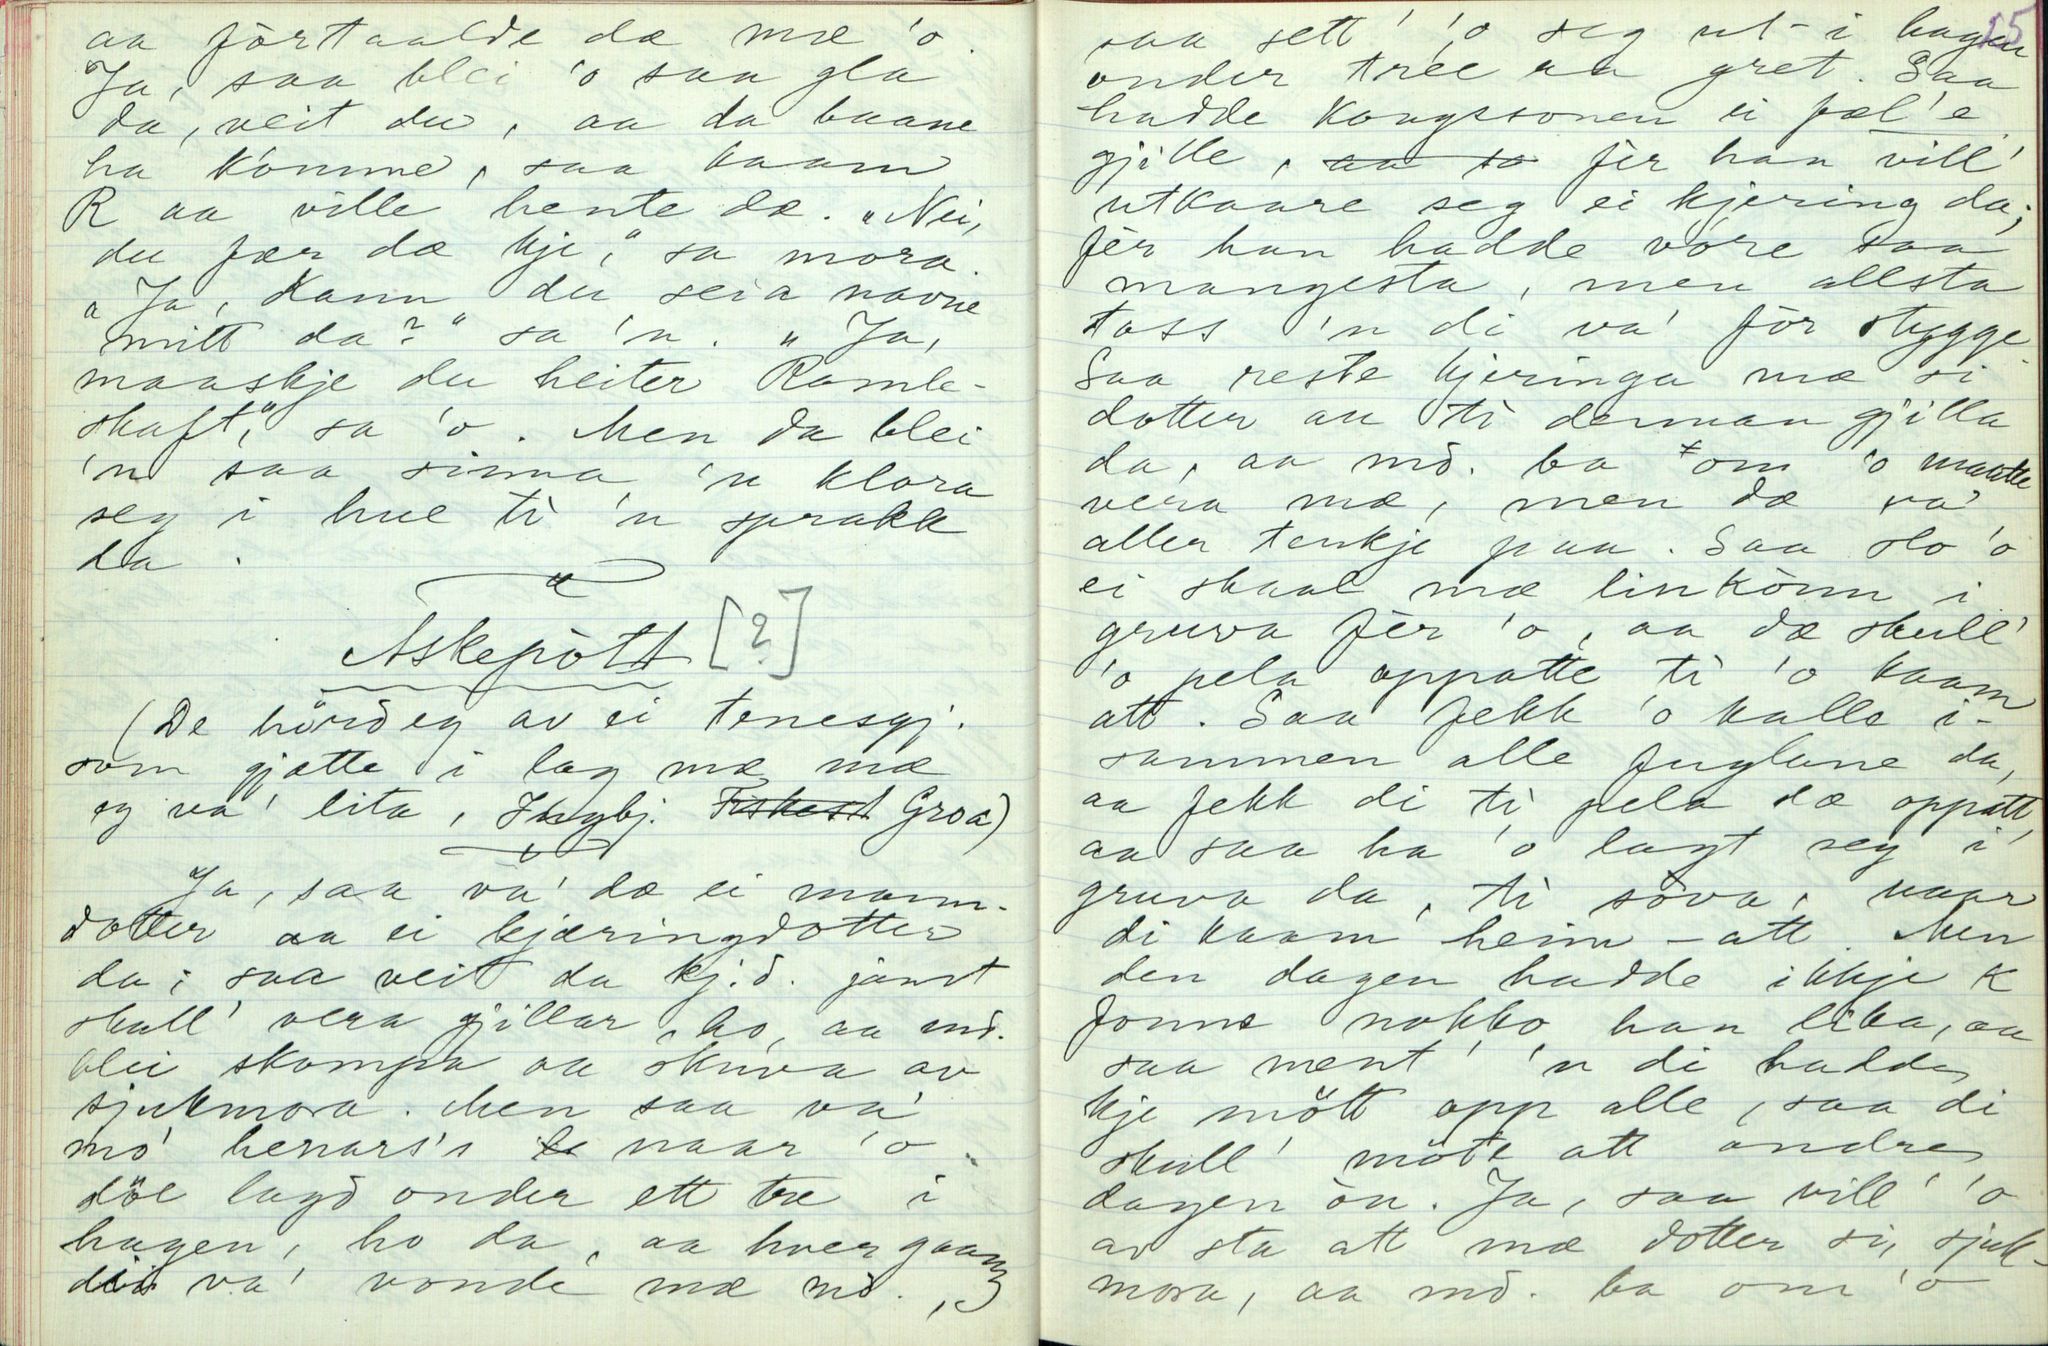 aa förtaalde dæ mæ 'o.
Ja, saa blei 'o saa gla
da, veit du, aa da baane
ha komme, saa kaam
R aa ville hente dæ. „Nei,
du fær dæ kje," sa mora.
„Ja, kann du seia navne
mitt da?" sa 'n. „Ja,
maaskje du heiter Ramle-
skaft," sa 'o. Men da blei
'n saa sinna 'n klora
seg i hue ti 'n sprakk
da.
Askepòtt [?]
(De hörd eg av ei tenesgj.
som gjætte i lag mæ mæ
eg va' lita, Ingbj. Groa)
Ja, saa va' dæ ei mann-
dotter aa ei kjæringdotter
da; saa veit du kj.d. jamt
skull' vera gjillar, ho, aa md.
blei skompa aa skuva av
sjukmora. Men saa va'
mo' henars's naar 'o
döe lagd onder ett tre i
hagen, ho da, aa hver gaang
di va' vonde mæ md.,
saa sett' 'o seg ut-i hagen
onder tree aa gret. Saa
hadde Kongssonen ei fæl'e
gjille, aa sa fèr han vill'
utkaare seg ei kjering da;
fèr han hadde vore saa
mangesta, men allsta
toss 'n di va' för stygge.
Saa reste kjeringa mæ si
dotter au ti derman gjilla
da, aa md. ba om 'o maatte
vera mæ, men dæ va'
aller tenkje paa. Saa slo 'o
ei skaal mæ linkònn i
gruva fèr 'o, aa dæ skull'
'o pela oppatte ti 'o kaam
att. Saa fekk 'o kalle i-
sammen alle fuglane da,
aa fekk di ti pela dæ oppatt,
aa saa ha 'o lagt seg i
gruva da, ti sòva, naar
di kaam heim-att. Men
den dagen hadde ikkje K
fonne nokko han lika, aa
saa ment' 'n di hadde
kje mött opp alle, saa di
skull' möte att andre
dagen òn. Ja, saa vill' 'o
av sta att mæ dotter si, sjuk-
mora, aa md. ba om 'o
15